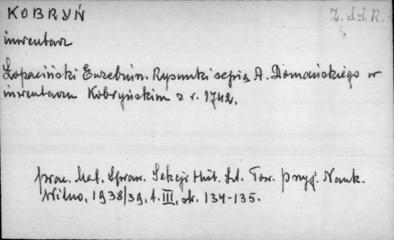 KOBRYŃ
Z. d.d R.
inwentarz
Łopaciński Euzebiusz. Rysunki sepią A. Domańskiego w
inwentarzu Kobryńskim z r. 1742.
Prac. Mat. Spraw. Sekcji Hist. Szt. Tow. Przyj. Nauk.
Wilno, 1938/39, t. III, str. 134-135.